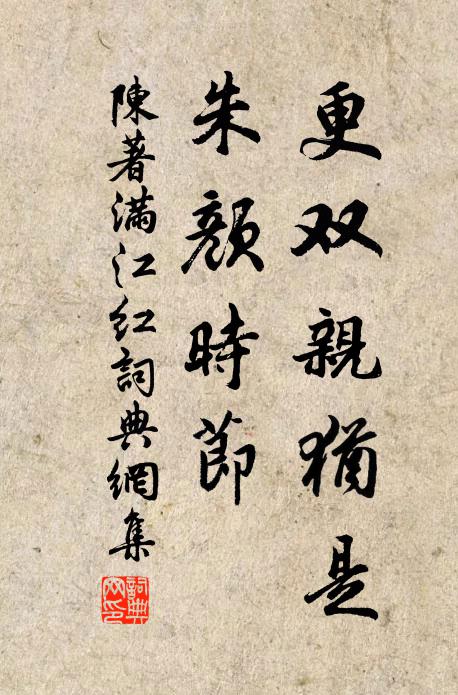 更双親猶是
朱顔時節
陳著滿江紅詞典網集
詞典
网印